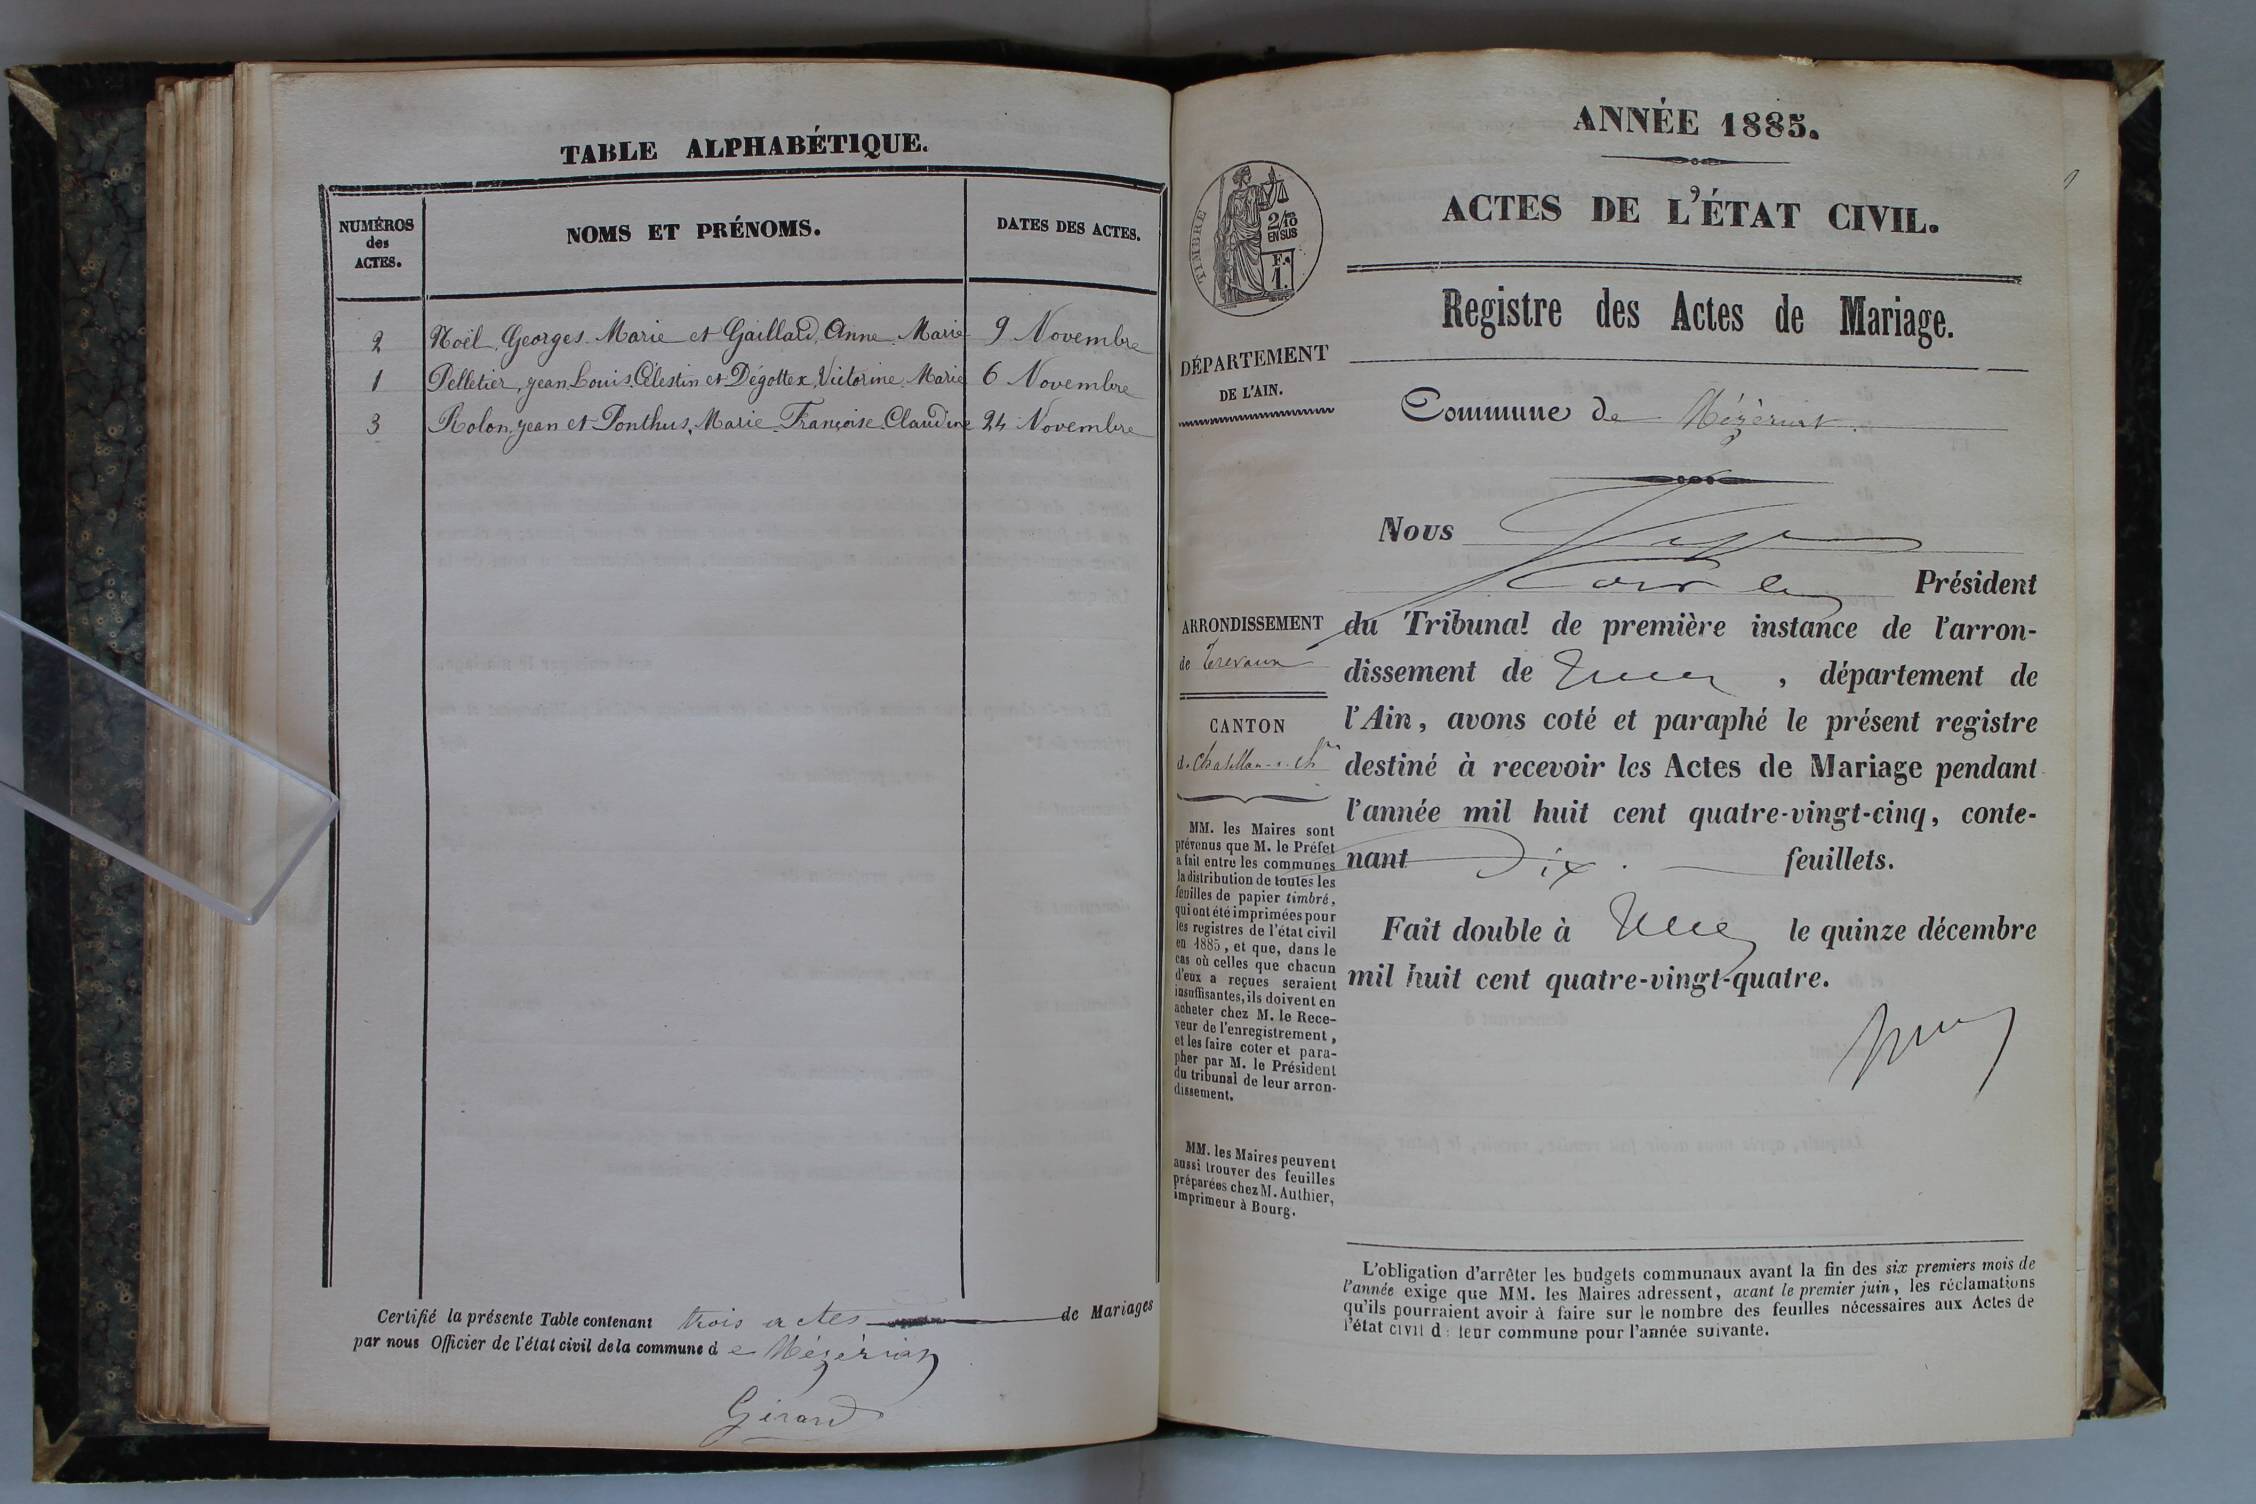 TABLE ALPHABÉTIQUE.
NUMÉROS
des
ACTES.
NOMS ET PRÉNOMS.
DATES DES ACTES.
2 Noël, Georges Marie et Gaillard, Anne Marie 9 Novembre
1 Pelletier, jean Louis Célestin et Dégottex, Victorine Marie 6 Novembre
3 Rolon, jean et Ponthus, Marie Françoise Claudine 24 Novembre
Certifié la présente Table contenant trois actes de Mariages
par nous Officier de l'état civil de la commune de Mézériat
Girard
ANNÉE 1885.
ACTES DE L'ÉTAT CIVIL.
Registre des Actes de Mariage.
TIMBRE
2/10
EN SUS
F.
1.
DÉPARTEMENT
DE L'AIN.
ARRONDISSEMENT
de Trévoux
CANTON
de Chatillon-s-Chne
MM. les Maires sont
prévenus que M. le Préfet
a fait entre les communes
la distribution de toutes les
feuilles de papier timbré,
qui ont été imprimées pour
les registres de l'état civil
en 1885, et que, dans le
cas où celles que chacun
d'eux a reçues seraient
insuffisantes, ils doivent en
acheter chez M. le Rece-
veur de l'enregistrement,
et les faire coter et para-
pher par M. le Président
du tribunal de leur arron-
dissement.
MM. les Maires peuvent
aussi trouver des feuilles
préparées chez M. Authier,
imprimeur à Bourg.
Commune de Mézériat
Nous
Président
du Tribunal de première instance de l'arron-
dissement de , département de
l'Ain, avons coté et paraphé le présent registre
destiné à recevoir les Actes de Mariage pendant
l'année mil huit cent quatre-vingt-cinq, conte-
nant Dix feuillets.
Fait double à le quinze décembre
mil huit cent quatre-vingt-quatre.
L'obligation d'arrêter les budgets communaux avant la fin des six premiers mois de
l'année exige que MM. les Maires adressent, avant le premier juin, les réclamations
qu'ils pourraient avoir à faire sur le nombre des feuilles nécessaires aux Actes de
l'état civil d: leur commune pour l'année suivante.